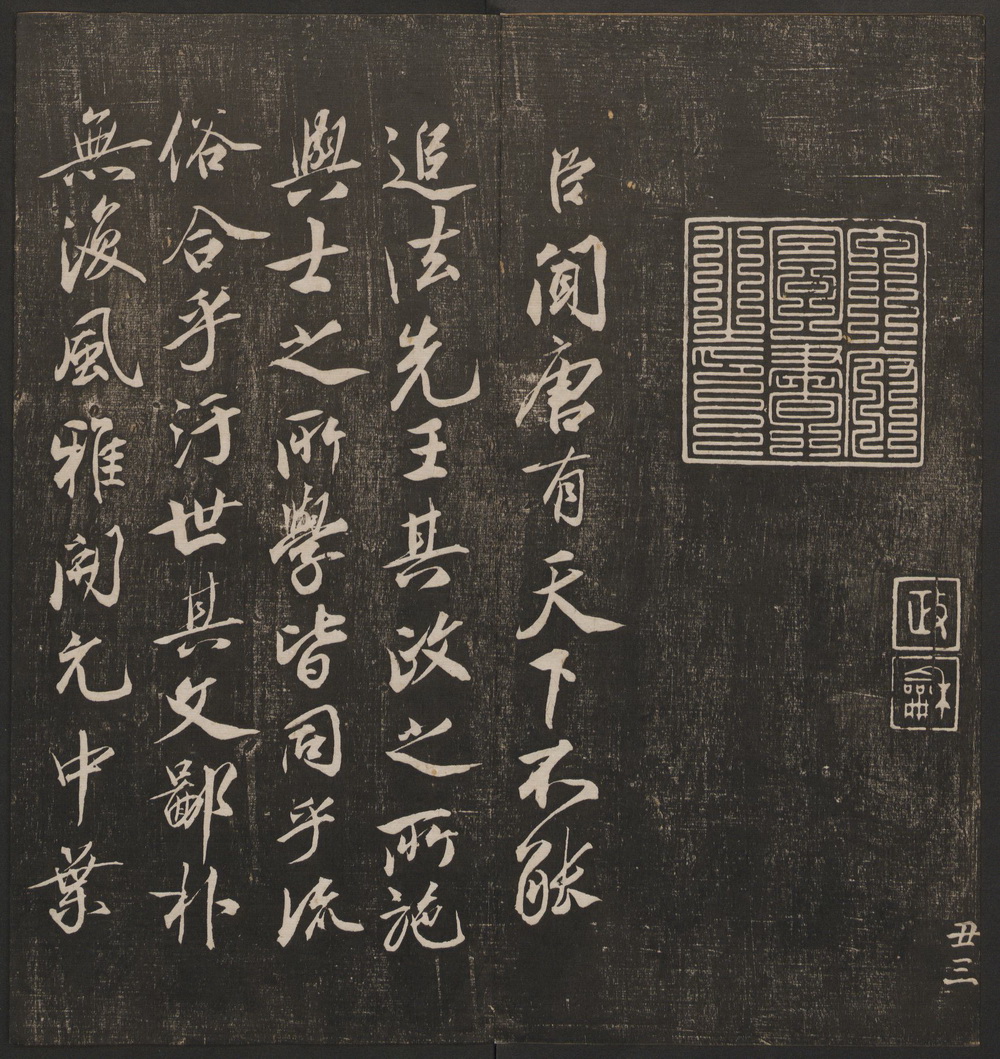 政
龢
丑三
臣聞唐有天下不能
追法先王其政之所施
與士之所學皆同乎流
俗合乎汙世其文鄙朴
無復風雅開元中葉